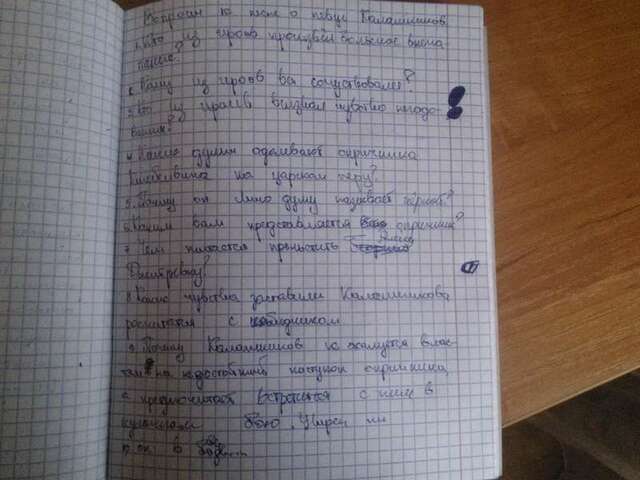 Вопросы к песне о купце Калашников
1. Кто из героев произвел большое впеча-
тление?
2. Кому из героев вы сочувствовали?
3. Кто из героев вызвал чувство негодо-
вания?
4. Какие думы одолевают опричника
Кирибеевича на царском пиру?
5. Почему он свою думу называет черной?
6. Каким вам представляется опричник?
7. Чем пытается прельстить Алену
Дмитревну?
8. Какие чувства заставили Калашникова
расчитатся с обидчиком
9. Почему Калашников не жалуется влас-
тям на недостойный поступок опричника,
а предпочитает встретится с ним в
кулачном бою. Уверен ли
он в